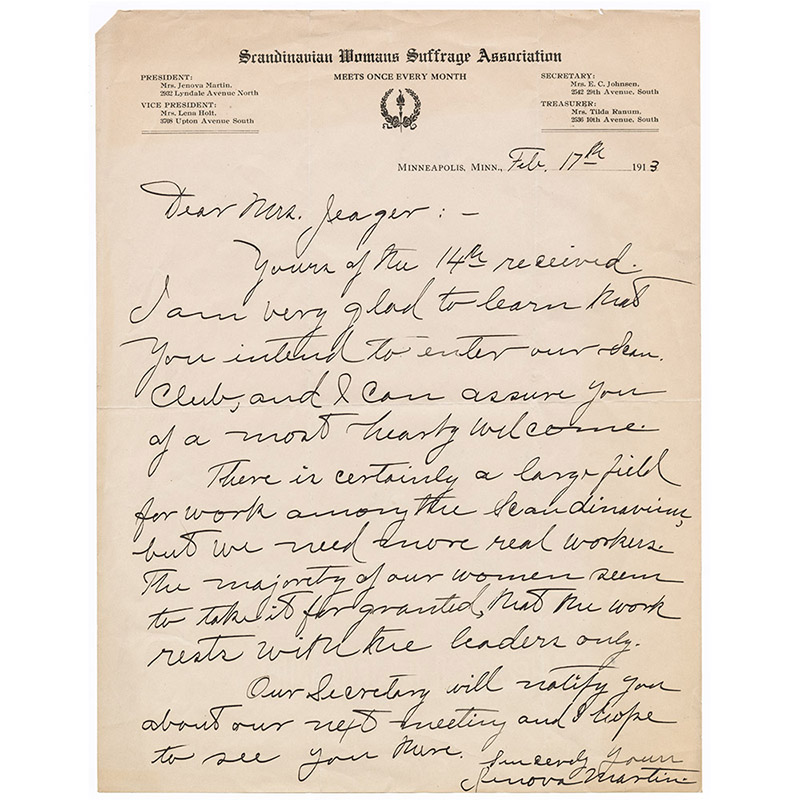 Scandinavian Womans Suffrage Association
MEETS ONCE EVERY MONTH
PRESIDENT:
Mrs. Jenova Martin.
2932 Lyndale Avenue North
VICE PRESIDENT:
Mrs. Lena Holt.
3708 Upton Avenue South
SECRETARY:
Mrs. E. C. Johnsen.
2542 29th Avenue, South
TREASURER:
Mrs. Tilda Ranum.
2536 10th Avenue, South
MINNEAPOLIS, MINN., Feb. 17th 1913
Dear Mrs. Jeager : -
Yours of the 14th received.
I am very glad to learn that
you intend to enter our Scan.
Club, and I can assure you
of a most hearty welcome.
There is certainly a large field
for work among the Scandinavians,
but we need more real workers.
The majority of our women seem
to take it for granted, that the work
rests with the leaders only.
Our Secretary will notify you
about our next meeting and I hope
to see you there.
Sincerely Yours
Jenova Martin.